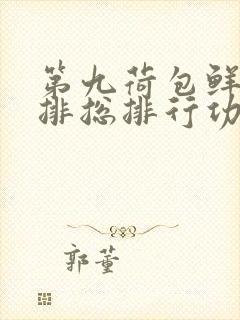 第九荷包鲜
排总排行功
郭董